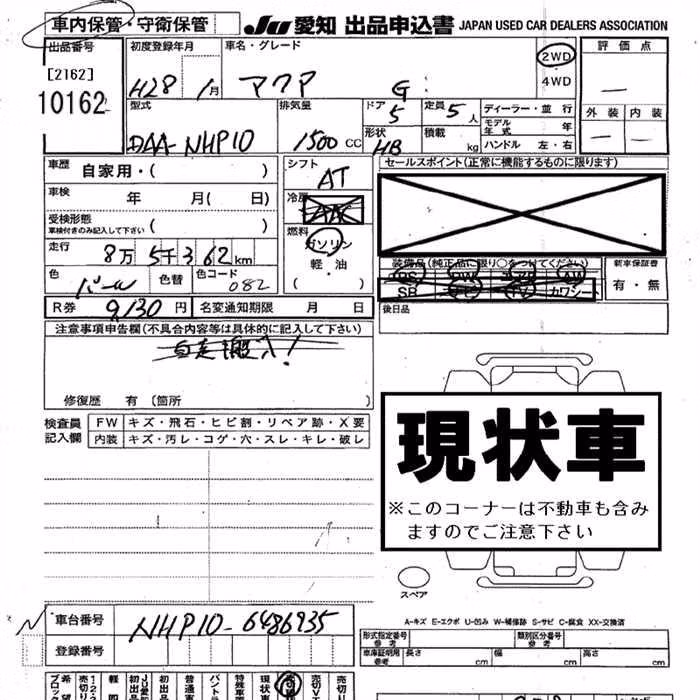 車内保管・守衛保管
JU 愛知 出品申込書 JAPAN USED CAR DEALERS ASSOCIATION
出品番号
[2162]
10162
初度登録年月
H28 1月
車名・グレード
アクア G
2WD
4WD
評価点
外装 内装
型式
DAA-NHP10
排気量
1500 CC
ドア 5
形状 HB
定員 5 人
積載 kg
ディーラー・並行
モデル年式 年
ハンドル 左・右
車歴 自家用・( )
車検 年 月( 日)
受検形態
車検付きのみ記入して下さい ( )
走行 8万 5千362km
色 パール 色替 色コード 082
シフト AT
冷房 AAC
燃料 ガソリン
軽・油
( )
セールスポイント(正常に機能するものに限ります)
装備品(純正品に限り○をつけてください)
PS PW AW
SR TV カワシート
新車保証書
有・無
R券 9,130円 名変通知期限 月 日
後日品
注意事項申告欄(不具合内容等は具体的に記入して下さい)
自走搬入!
修復歴 有 (箇所
検査員記入欄
FW キズ・飛石・ヒビ割・リペア跡・X要
内装 キズ・汚レ・コゲ・穴・スレ・キレ・破レ
現状車
※このコーナーは不動車も含み
ますのでご注意下さい
スペア
A-キズ E-エクボ U-凹み W-補修跡 S-サビ C-腐食 XX-交換済
車台番号 NHP10-6486935
登録番号
形式指定番号 参考
類別区分番号 参考
車庫証明用 参考 長さ cm 幅 cm 高さ cm